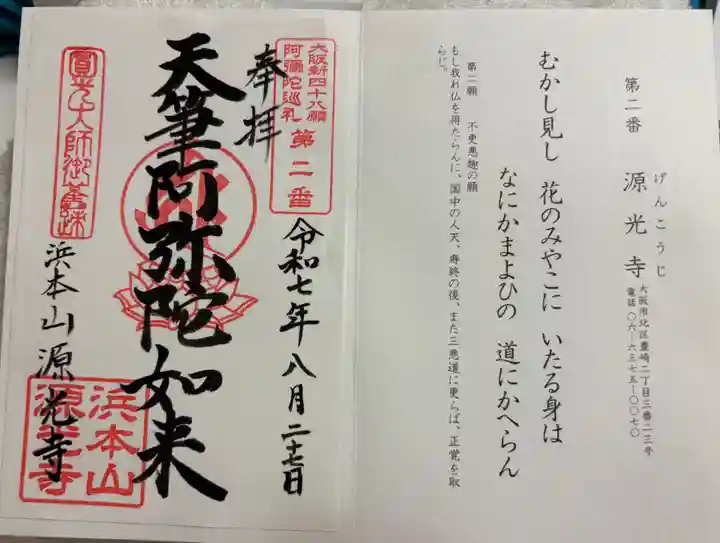 第二番
源光寺
げんこうじ
大阪市北区豊崎二丁目三番二三号
電話〇六―六三七五―〇〇七〇
むかし見し 花のみやこに いたる身は
なにかまよひの 道にかへらん
第二願 不更悪趣の願
もし我れ仏を得たらんに、国中の人天、寿終の後、また三悪道に更らば、正覚を取
らじ。
大阪新四十八願
阿彌陀巡礼
第二番
奉拝
令和七年八月二十七日
天筆阿弥陀如来
圓光大師御舊跡
浜本山源光寺
浜本山
源光寺